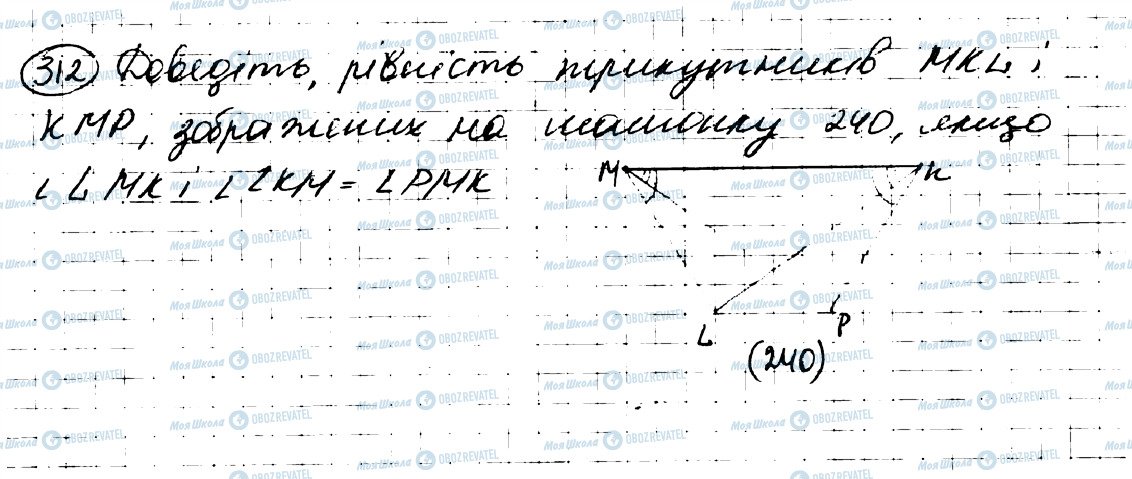 312 Доведіть, рівність трикутників MKL і
KMP, зображених на малюнку 240, якщо
∠LMK і ∠LKM = ∠PMK
M K
L P
(240)
МояШкола OBOZREVATEL